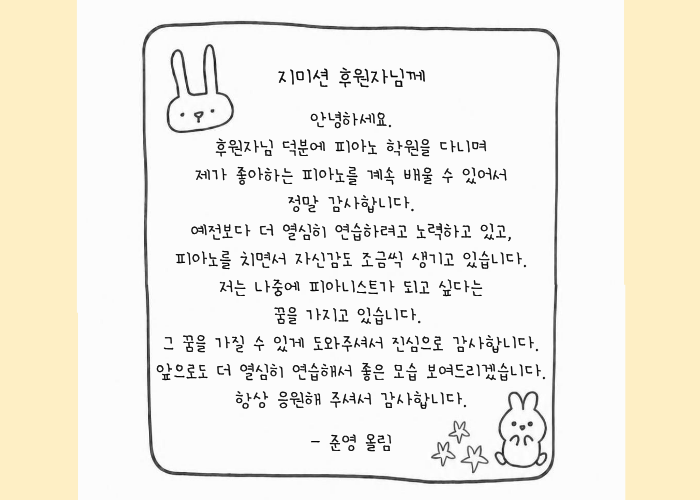 지미션 후원자님께
안녕하세요.
후원자님 덕분에 피아노 학원을 다니며
제가 좋아하는 피아노를 계속 배울 수 있어서
정말 감사합니다.
예전보다 더 열심히 연습하려고 노력하고 있고,
피아노를 치면서 자신감도 조금씩 생기고 있습니다.
저는 나중에 피아니스트가 되고 싶다는
꿈을 가지고 있습니다.
그 꿈을 가질 수 있게 도와주셔서 진심으로 감사합니다.
앞으로도 더 열심히 연습해서 좋은 모습 보여드리겠습니다.
항상 응원해 주셔서 감사합니다.
- 준영 올림